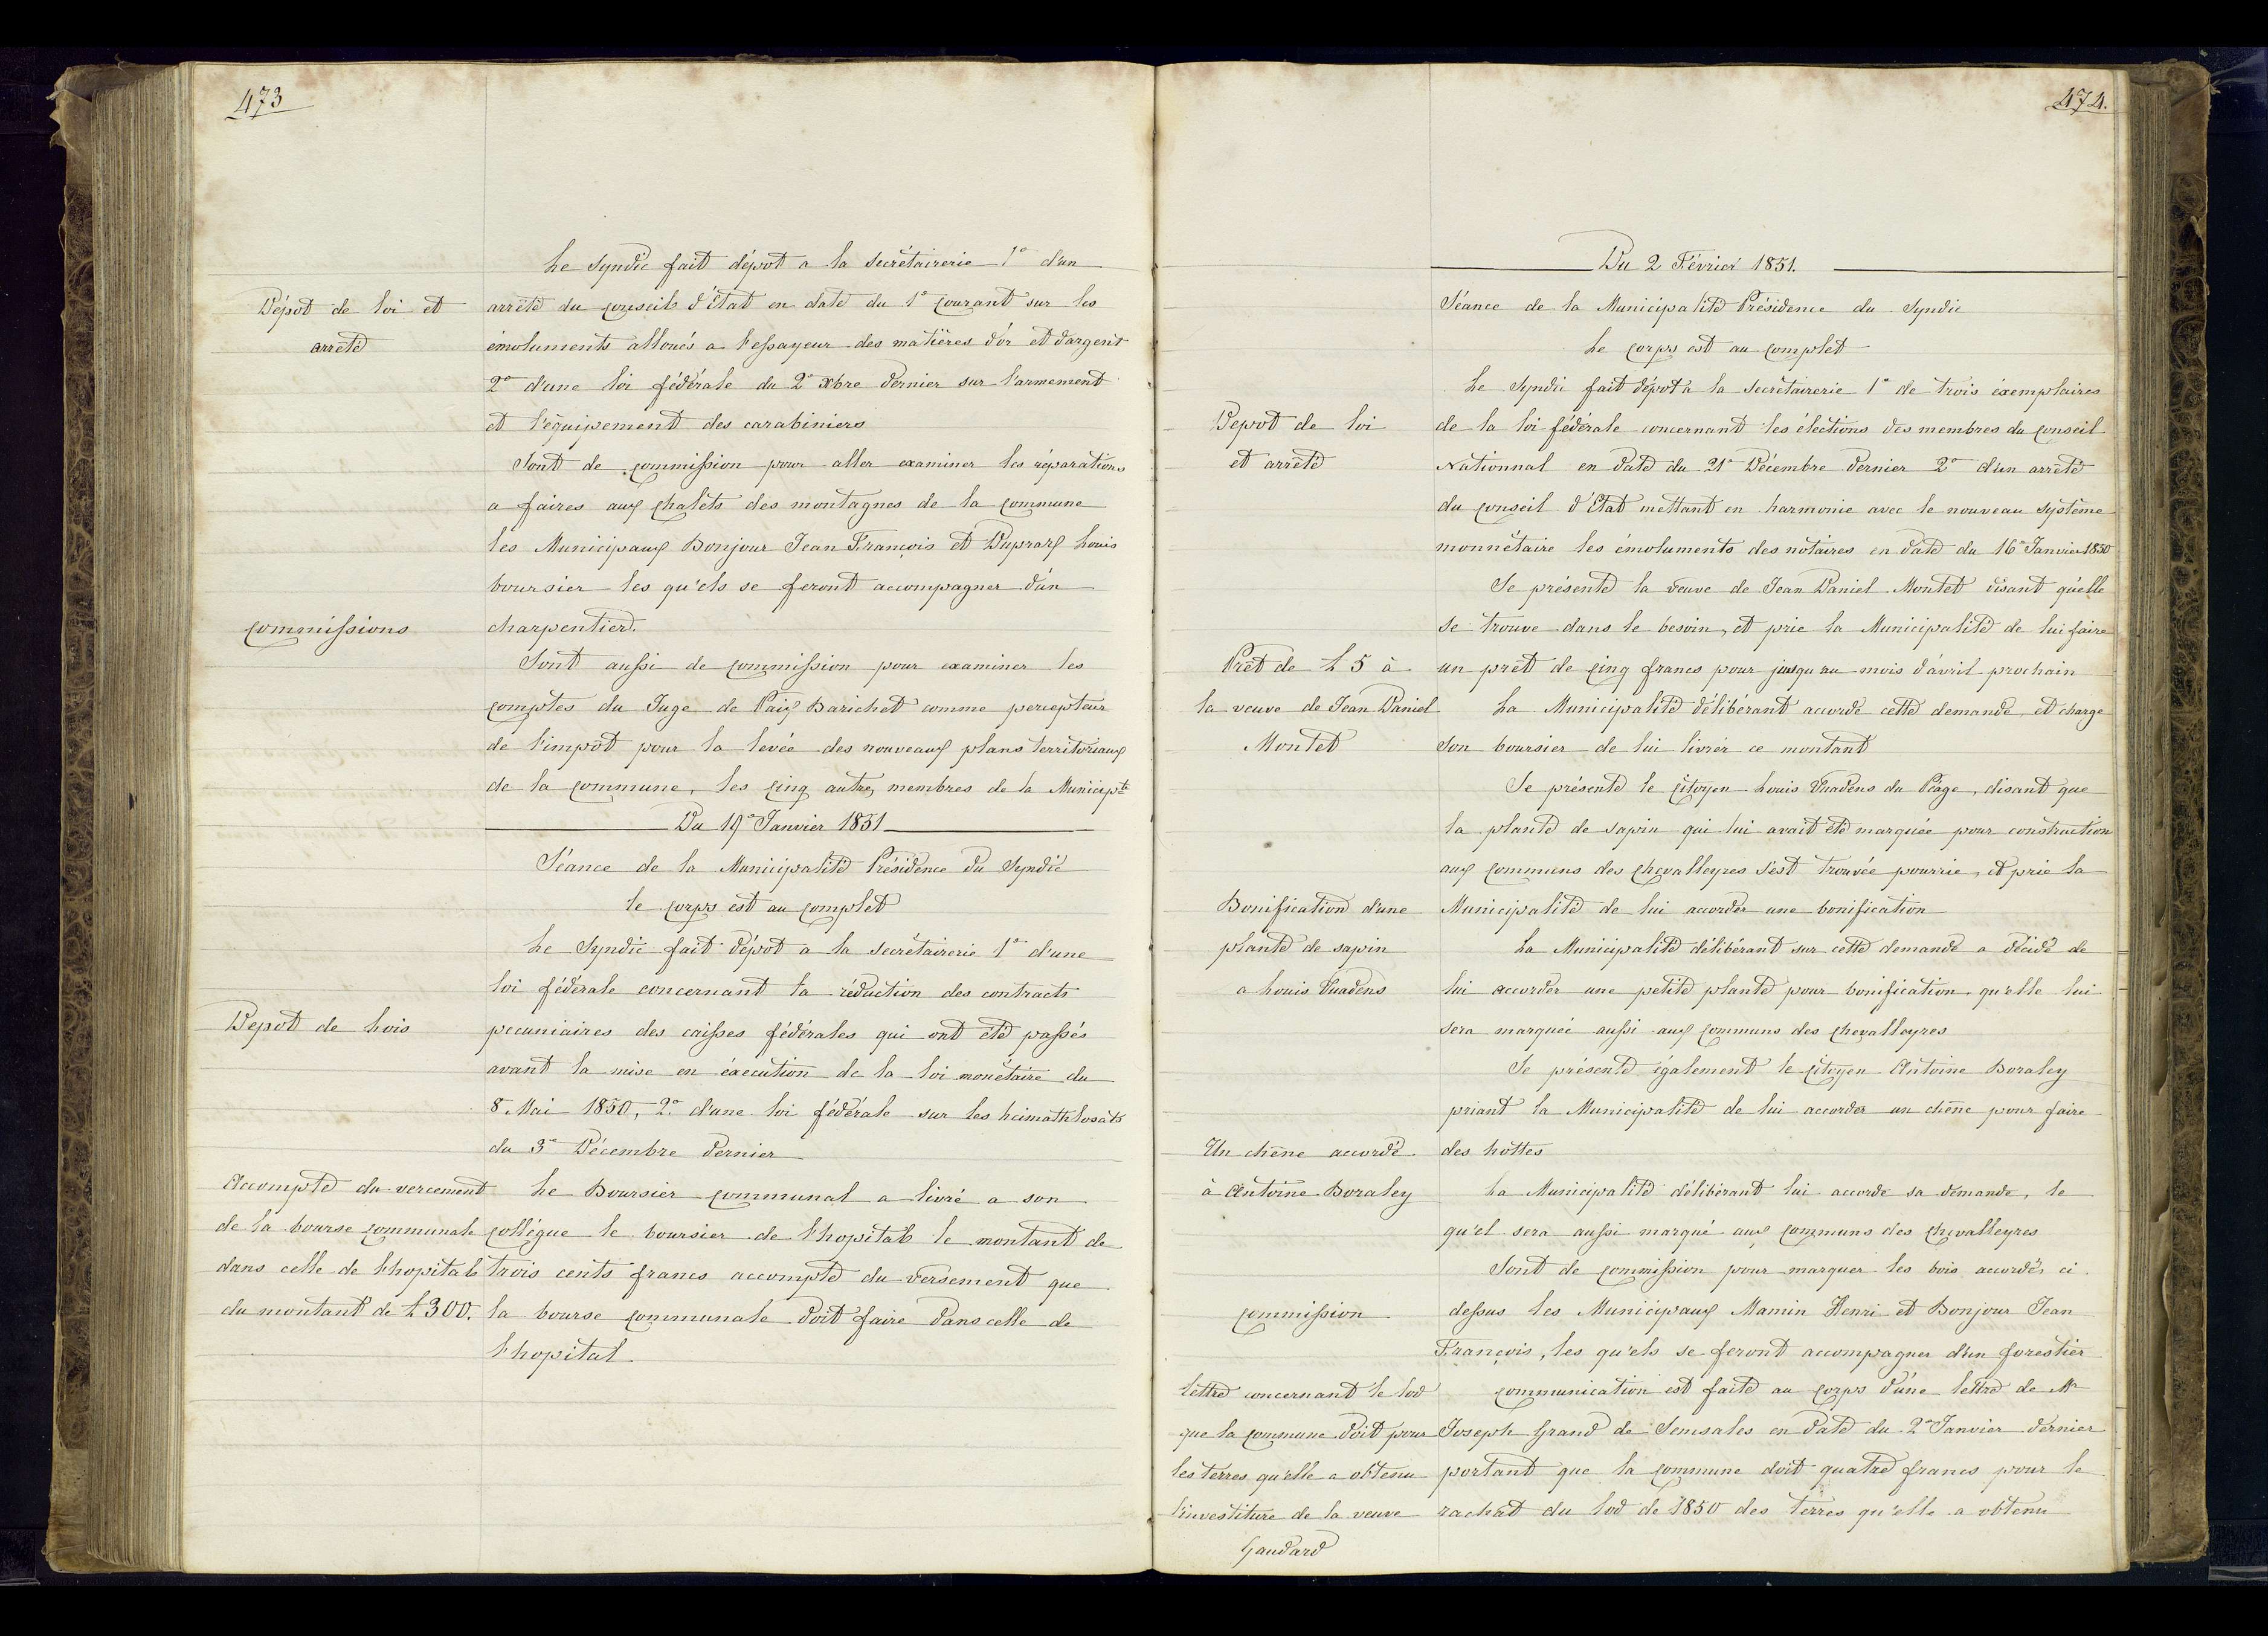 473
Le Syndic fait dépot a la secrétairerie 1° d'un
Dépot de loi et
arrêté
arrêté du conseil d'État en date du 1er courant sur les
émoluments alloués a l'essayeur des matières d'or et d'argent
2° d'une loi fédérale du 2e Xbre dernier sur l'armement
et l'équipement des carabiniers
Sont de commission pour aller examiner les réparations
a faires aux chalets des montagnes de la commune
les Municipaux Bonjour Jean François et Dupraz Louis
boursier les qu'els se feront accompagner d'un
commissions
charpentier.
Sont aussi de commission pour examiner les
comptes du Juge de Paix Barichet comme percepteur
de l'impôt pour la levée des nouveaux plans territoriaux
de la commune, les cinq autres membres de la Municipté
Du 19e Janvier 1851
Séance de la Municipalité Présidence du Syndic
le corps est au complet
Le Syndic fait dépot a la secrétairerie 1° d'une
loi fédérale concernant la réduction des contracts
Depot de lois
pecuniaires des caisses fédérales qui ont été passés
avant la mise en éxécution de la loi monétaire du
8 Mai 1850, 2° d'une loi fédérale sur les heimathlosats
du 3e Décembre dernier
Accompte du vercement
de la bourse communale
dans celle de l'hopital
du montant de £ 300.
Le Boursier communal a livré a son
collégue le boursier de l'hopital le montant de
trois cents francs accompte du versement que
la bourse communale doit faire dans celle de
l'hopital.
474.
Du 2 Février 1851.
Séance de la Municipalité Présidence du Syndic
Le corps est au complet
Le Syndic fait dépot a la secrétairerie 1° de trois éxemplaires
Depot de loi
et arrêté
de la loi fédérale concernant les élections des membres du conseil
Nationnal en date du 21e Décembre dernier 2° d'un arrêté
du conseil d'Etat mettant en harmonie avec le nouveau système
monnétaire les émoluments des notaires en date du 16e Janvier 1850
Se présente la veuve de Jean Daniel Montet disant qu'elle
se trouve dans le besoin, et prie la Municipalité de lui faire
Prêt de £ 5 à
la veuve de Jean Daniel
Montet
un prêt de cinq francs pour jusqu'au mois d'avril prochain
La Municipalité délibérant accorde cette demande et charge
son boursier de lui livrér ce montant
Se présente le citoyen Louis Vuadens du Péage, disant que
la plante de sapin qui lui avait été marquée pour construction
aux communs des chevalleyres s'est trouvée pourrie, et prie la
Bonification d'une
plante de sapin
a Louis Vuadens
Municipalité de lui accorder une bonification
La Municipalité délibérant sur cette demande a décidé de
lui accorder une petite plante pour bonification, qu'elle lui
sera marquée aussi aux communs des chevalleyres
Se présente également le citoyen Antoine Boraley
priant la Municipalité de lui accorder un chêne pour faire
Un chêne accordé
à Antoine Boraley
des hottes
La Municipalité délibérant lui accorde sa demande, le
qu'el sera aussi marqué aux communs des chevalleyres
Sont de commission pour marquer les bois accordés ci
commission
dessus les Municipaux Mamin Henri et Bonjour Jean
François, les qu'els se feront accompagner d'un forestier
Lettre concernant le lod
que la commune doit pour
les terres qu'elle a obtenu
l'investiture de la veuve
Gaudard
communication est faite au corps d'une lettre de Mr
Joseph Grand de Semsales en date du 2e Janvier dernier
portant que la commune doit quatre francs pour le
rachat du lod de 1850 des terres qu'elle a obtenu